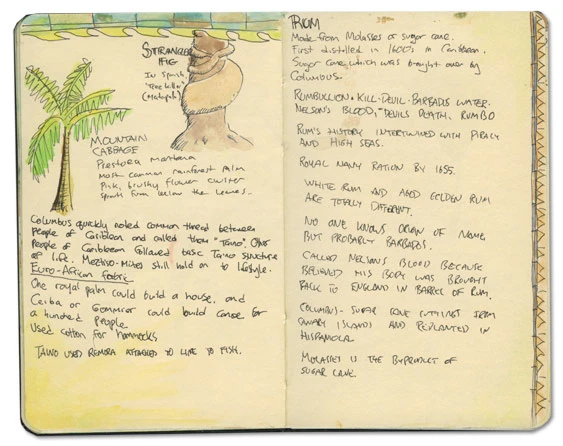 STRANGLER
FIG
In Spanish,
"Tree killer"
(Matapalo)
MOUNTAIN
CABBAGE
Prestoea montana
most common rainforest palm
Pink, brushy flower cluster
sprouts from below the leaves.
Columbus quickly noted common thread between
people of Caribbean and called them "Taino". Other
people of Caribbean followed basic Taino structure
of life. Mestizo-Mixed still hold on to lifestyle.
Euro-African fabric
One royal palm could build a house, and
Ceiba or Gommier could build canoe for
a hundred people
Used cotton for hammocks
TAINO USED REMORA ATTACHED TO LINE TO FISH.
RUM
Made from Molasses or sugar cane.
First distilled in 1600's in Caribbean.
Sugar cane, which was brought over by
Columbus.
RUMBULLION • KILL-DEVIL • BARBADOS WATER •
NELSON'S BLOOD, DEVILS DEATH, RUMBO
RUM'S HISTORY INTERTWINED WITH PIRACY
AND HIGH SEAS.
ROYAL NAVY RATION BY 1655.
WHITE RUM AND AGED GOLDEN RUM
ARE TOTALLY DIFFERENT.
NO ONE KNOWS ORIGIN OF NAME,
BUT PROBABLY BARBADOS.
CALLED NELSON'S BLOOD BECAUSE
BELIEVED HIS BODY WAS BROUGHT
BACK TO ENGLAND IN BARREL OF RUM.
COLUMBUS - SUGAR CANE CUTTINGS FROM
CANARY ISLANDS AND REPLANTED IN
HISPANOLA
MOLASSES IS THE BYPRODUCT OF
SUGAR CANE.